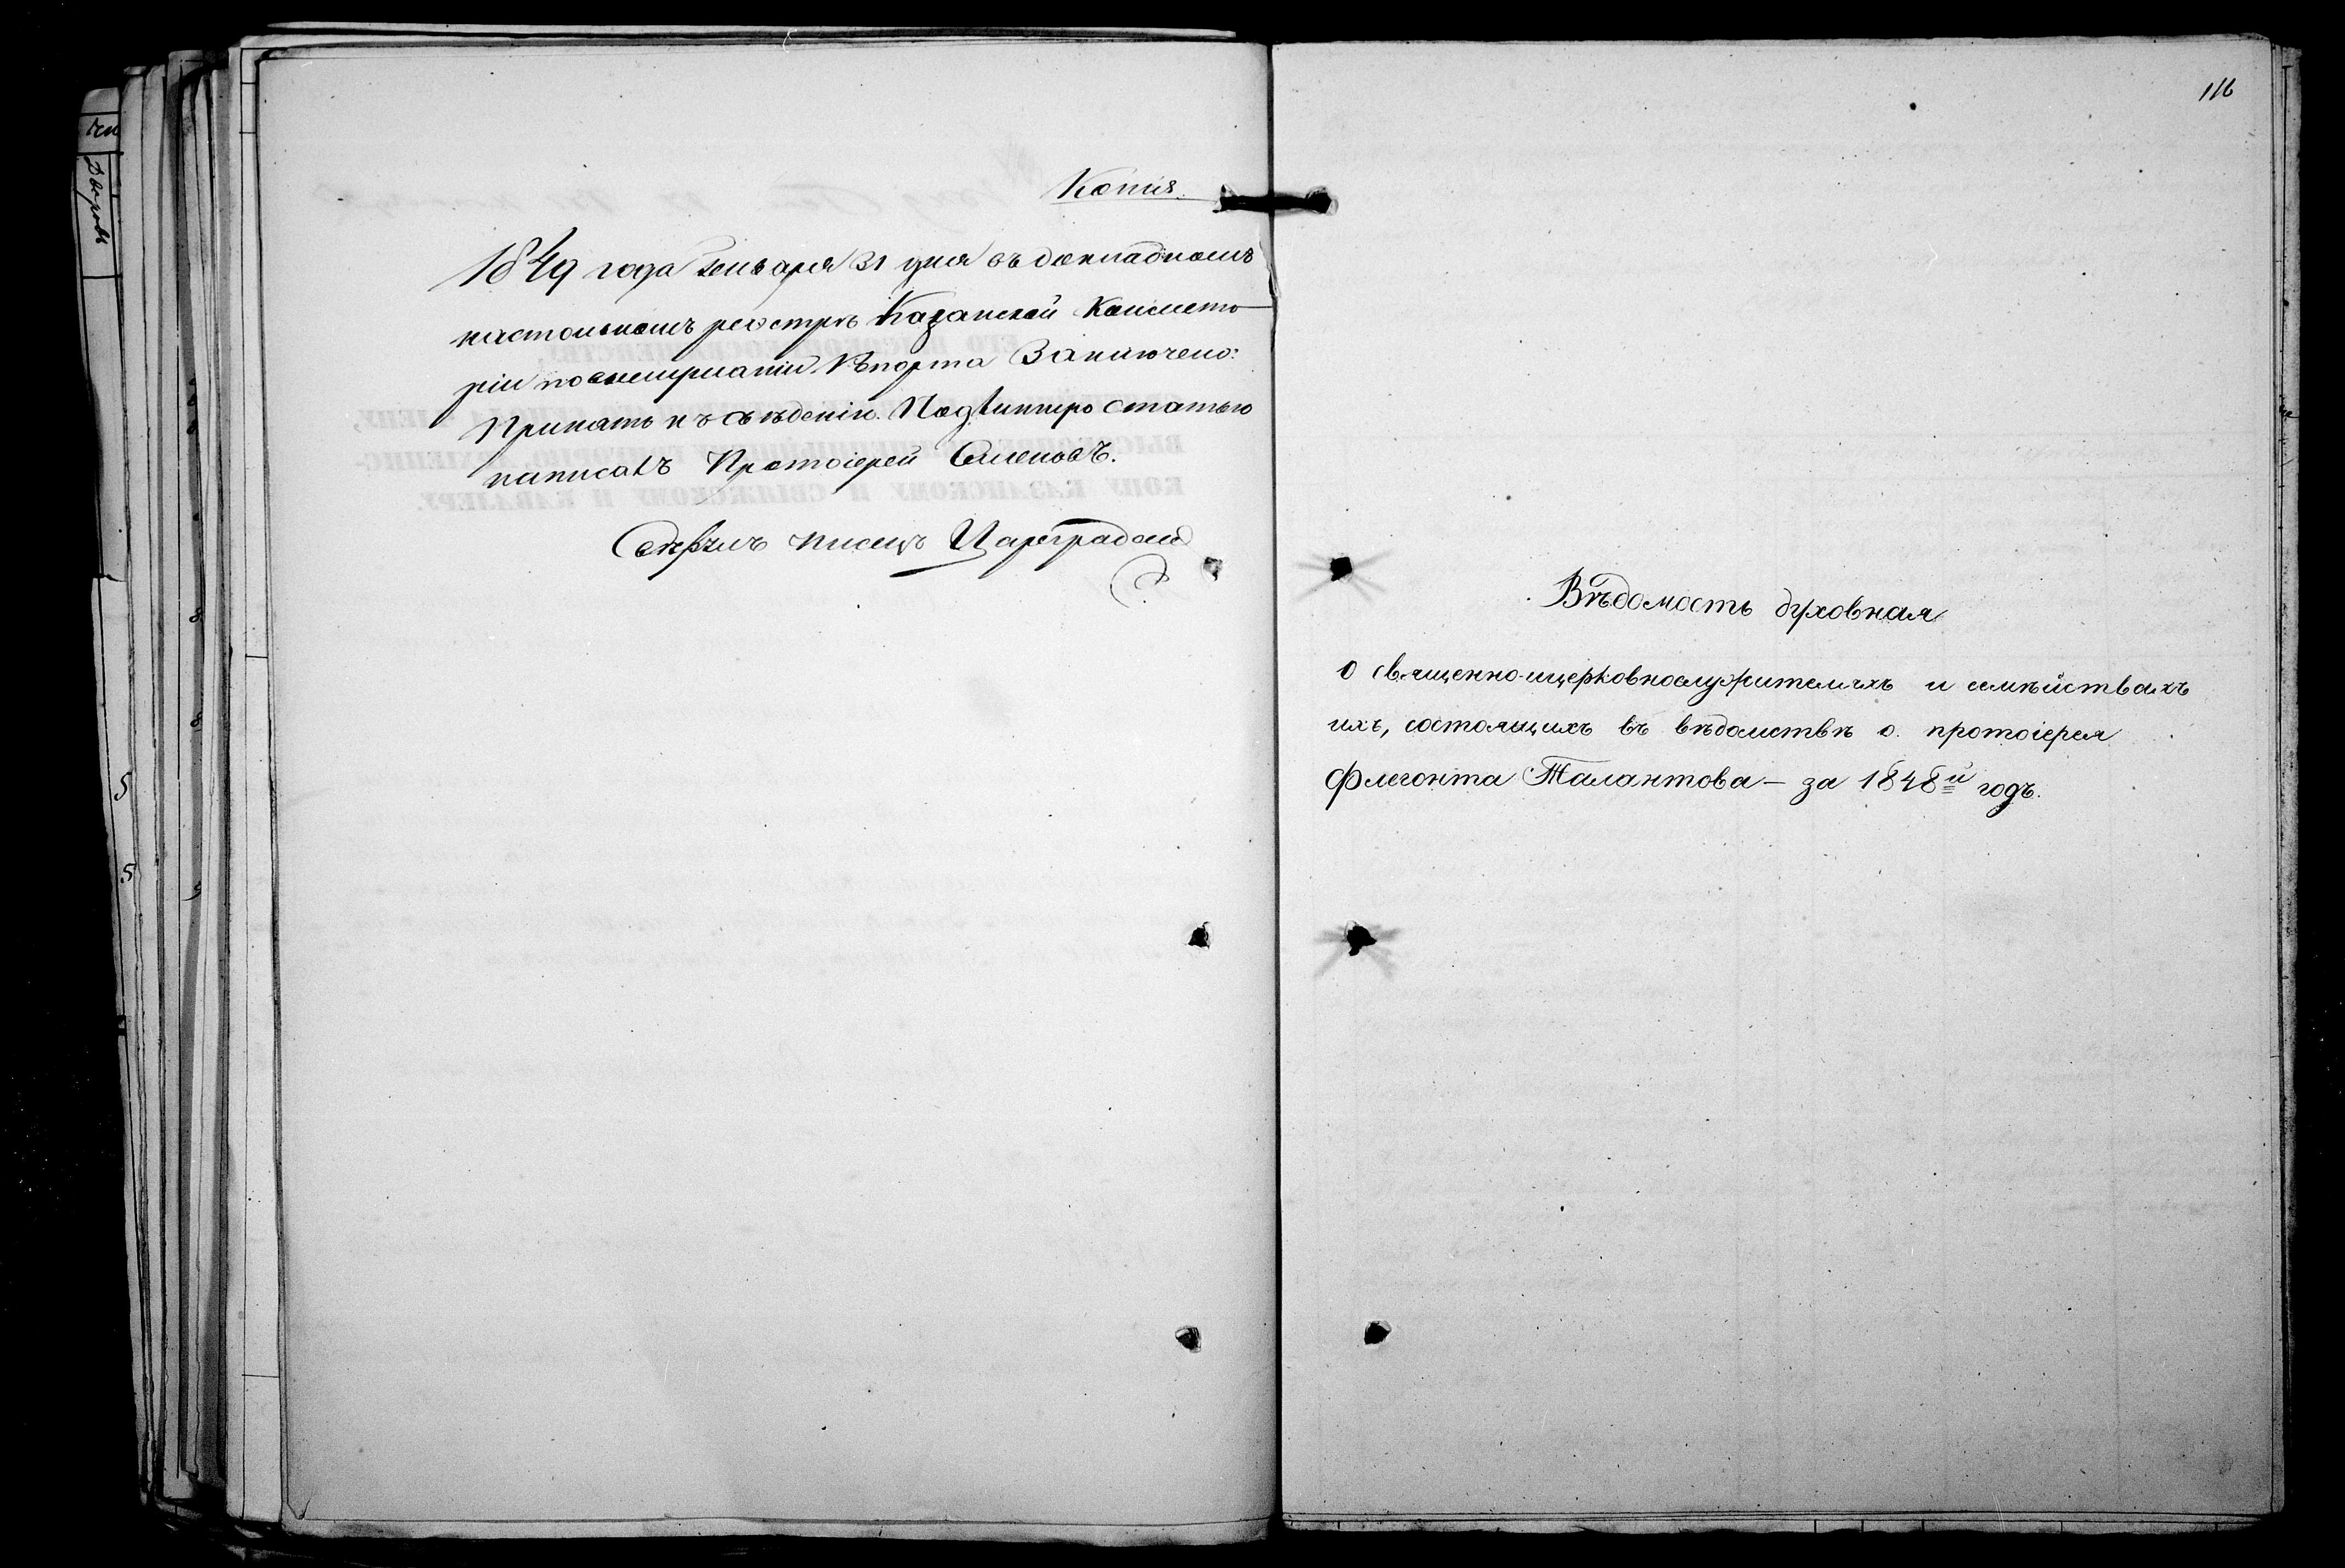 Копія.
1849 года Генваря 31 дня въ докладномъ
настольномъ реэстрѣ Казанской Консисто
ріи по сему рѣпорта Заключено:
Принять къ свѣденію. Под. статью
написалъ Протоіерей Семеновъ.
Свѣрялъ писецъ Цареградскій
116
Вѣдомость духовная
о священно-ицерковнослужителяхъ и семѣйствахъ
ихъ, состоящихъ въ вѣдомствѣ о. протоіерея
Флегонта Талантова — за 1848й годъ.